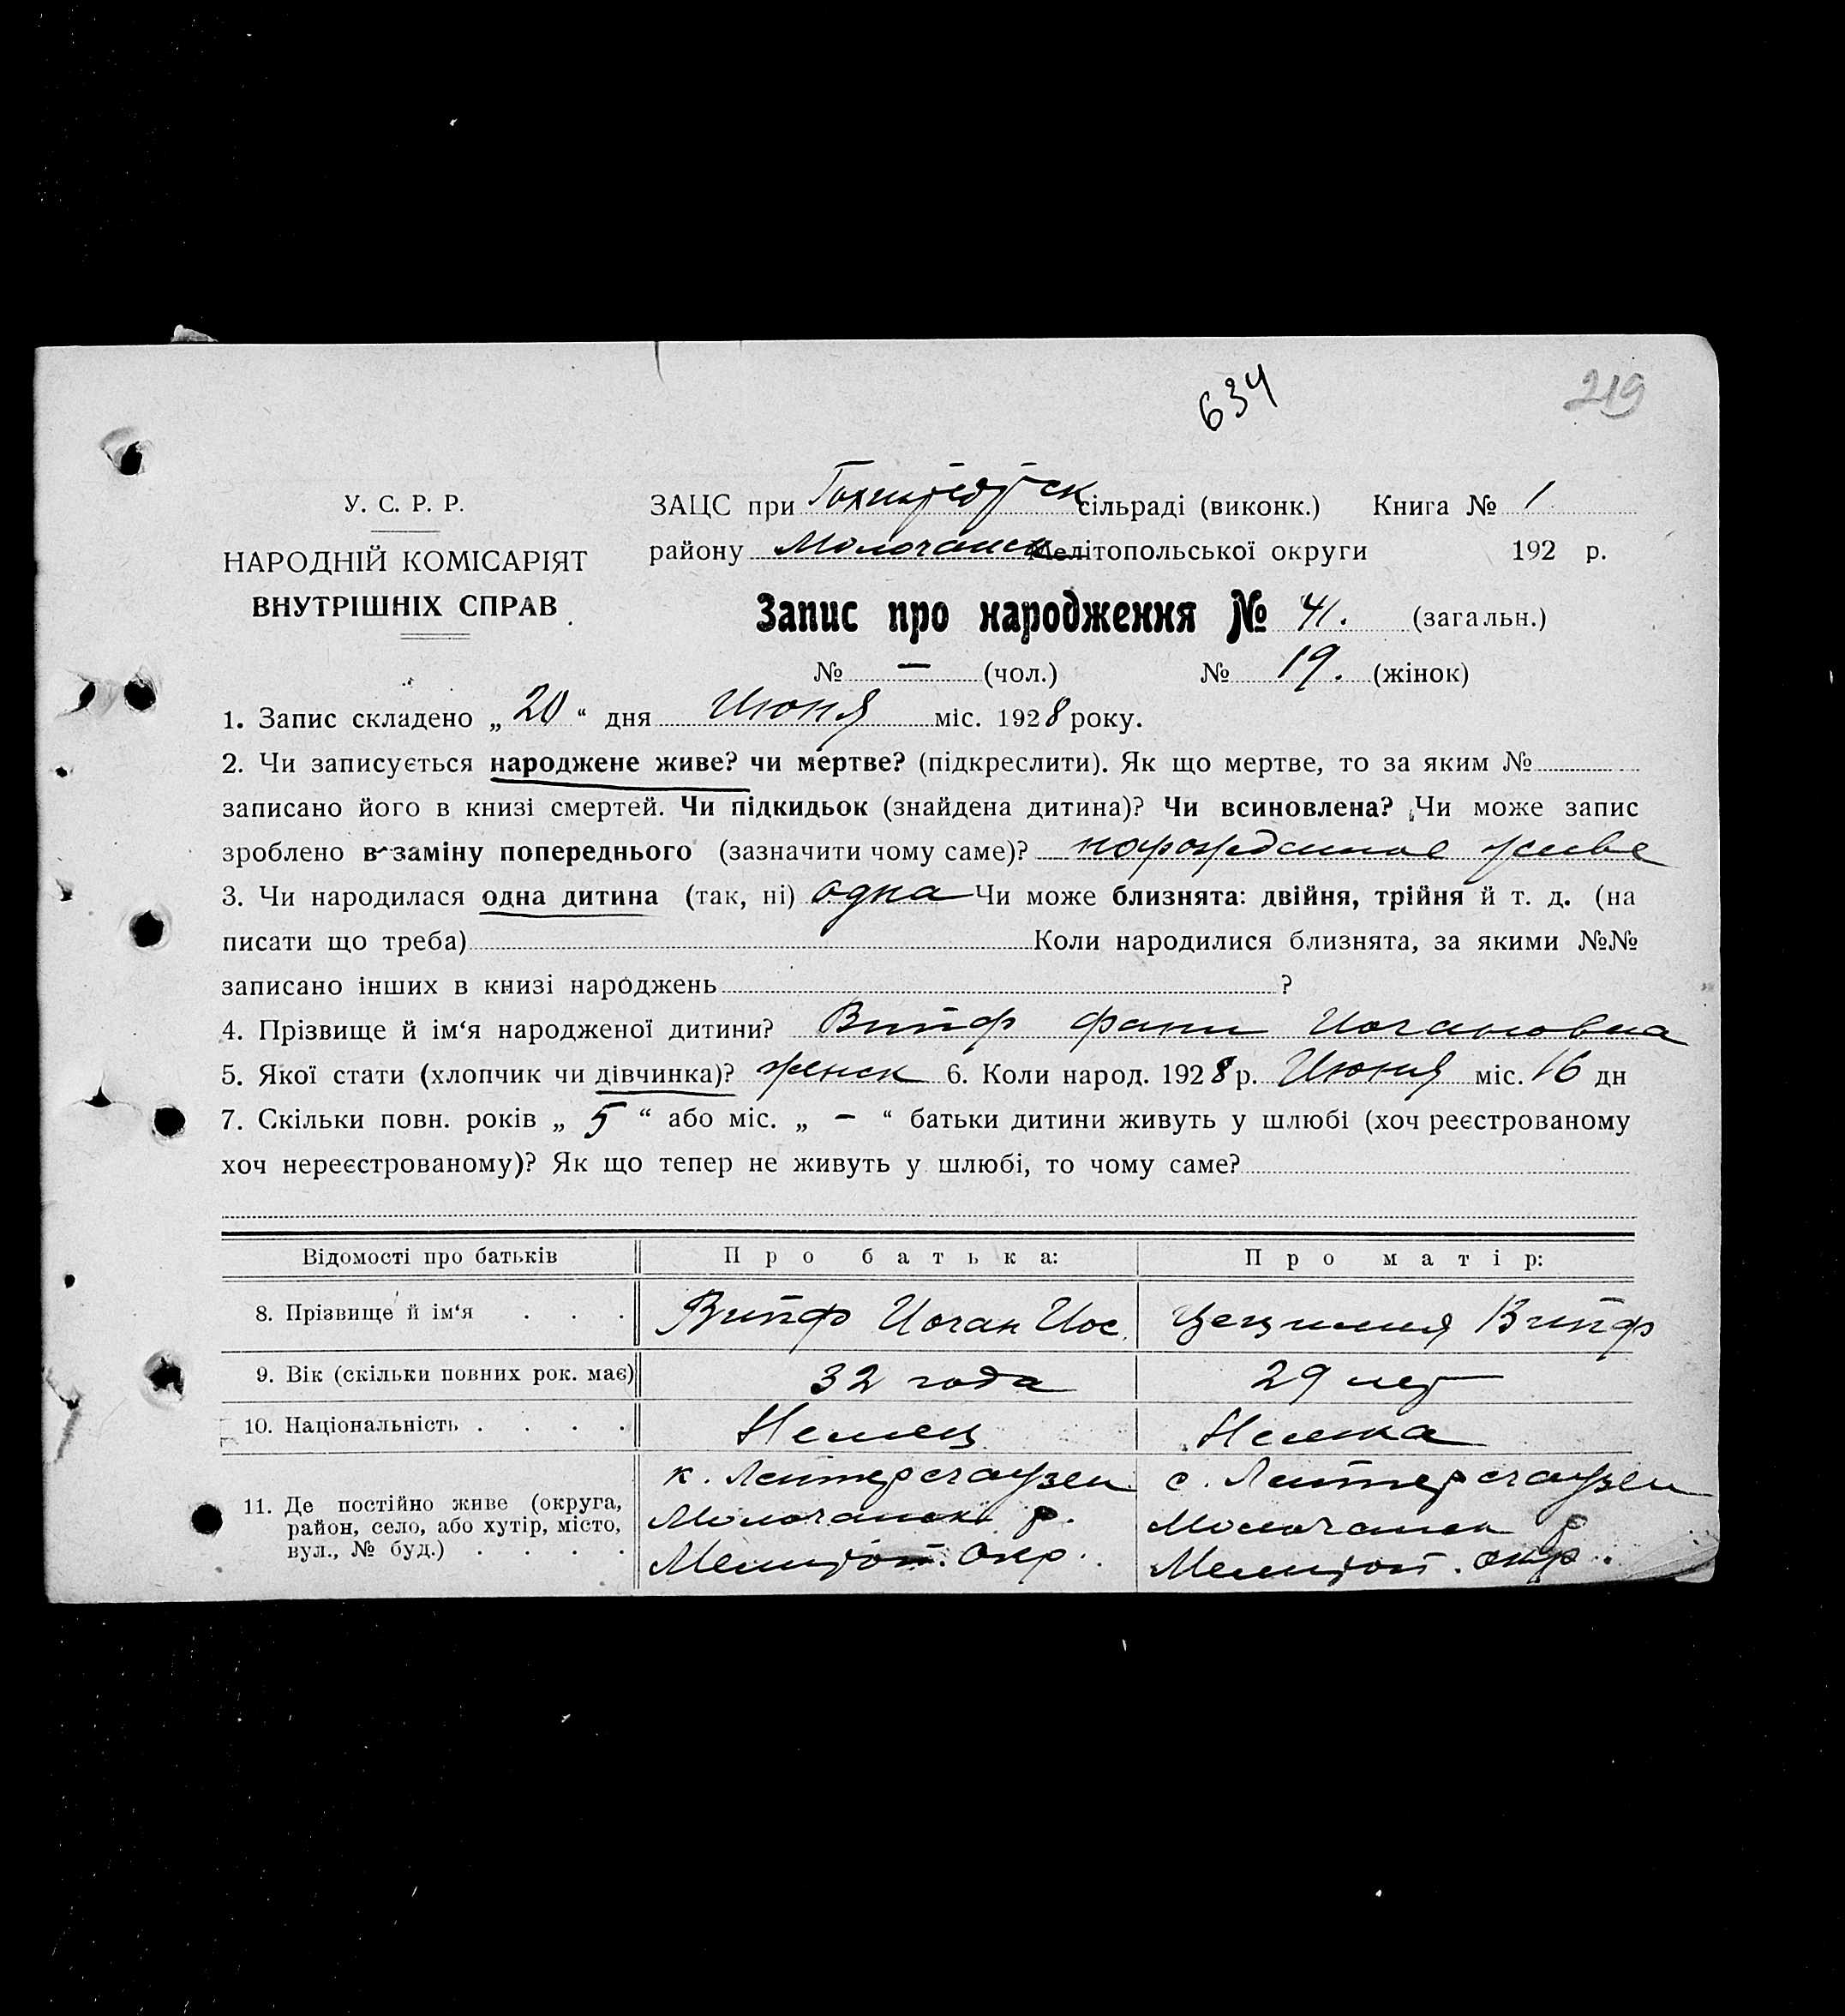 634
219
У. С. Р. Р.
НАРОДНІЙ КОМІСАРІЯТ
ВНУТРІШНІХ СПРАВ
ЗАЦС при Гохштедтск сільраді (виконк.) Книга № 1
району Молочанск Мелітопольської округи 192 р.
Запис про народження № 41. (загальн.)
№ — (чол.) № 19. (жінок)
1. Запис складено „ 20 “ дня Июня міс. 1928 року.
2. Чи записується народжене живе? чи мертве? (підкреслити). Як що мертве, то за яким №
записано його в книзі смертей. Чи підкидьок (знайдена дитина)? Чи всиновлена? Чи може запис
зроблено в заміну попереднього (зазначити чому саме)? живе
3. Чи народилася одна дитина (так, ні) одна Чи може близнята: двійня, трійня й т. д. (на
писати що треба) Коли народилися близнята, за якими №№
записано інших в книзі народжень ?
4. Прізвище й ім‘я народженої дитини? Випф Фани Иогановна
5. Якої стати (хлопчик чи дівчинка)? женск 6. Коли народ. 1928 р. Июня міс. 16 дн
7. Скільки повн. років „ 5 “ або міс. „ — “ батьки дитини живуть у шлюбі (хоч реєстрованому
хоч нереєстрованому)? Як що тепер не живуть у шлюбі, то чому саме?
Відомості про батьків Про батька: Про матір:
8. Прізвище й ім‘я . . . Випф Иоган Иос. Цецилия Випф
9. Вік (скільки повних рок. має) 32 года 29 лет
10. Національність . . . . Немец Немка
11. Де постійно живе (округа, район, село, або хутір, місто, вул., № буд.) . . . .
к. Лейтерсгаузен
Молочанск р.
Мелитоп. Окр.
с. Лейтерсгаузен
Молочанск р
Мелитоп. окр.